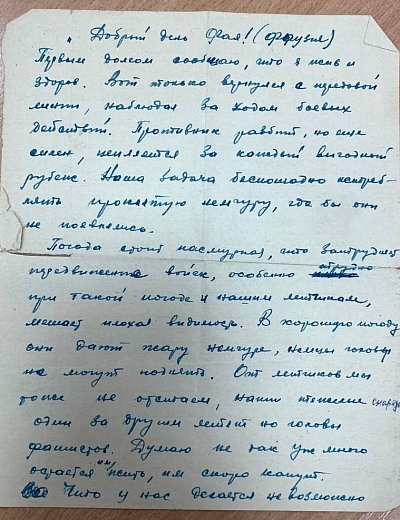 „Добрый день Фая! (Фаузия)
Первым долгом сообщаю, что я жив и
здоров. Вот только вернулся с передовой
линии, наблюдал за ходом боевых
действий. Противник разбит, но еще
силен, цепляется за каждый выгодный
рубеж. Наша задача беспощадно истреб-
лять проклятую немчуру, где бы они
не появлялись.
Погода стоит пасмурная, что затрудняет
передвижение войск, особенно трудно
при такой погоде и нашим летчикам,
мешает плохая видимость. В хорошую погоду
они дают жару немчуре, немцы головы
не могут поднять. От летчиков мы
тоже не отстаем, наши тяжелые снаряды
один за другим летят на головы
фашистов. Думаю не так уж много
остается им жить, им скоро капут.
Что у нас делается не возможно